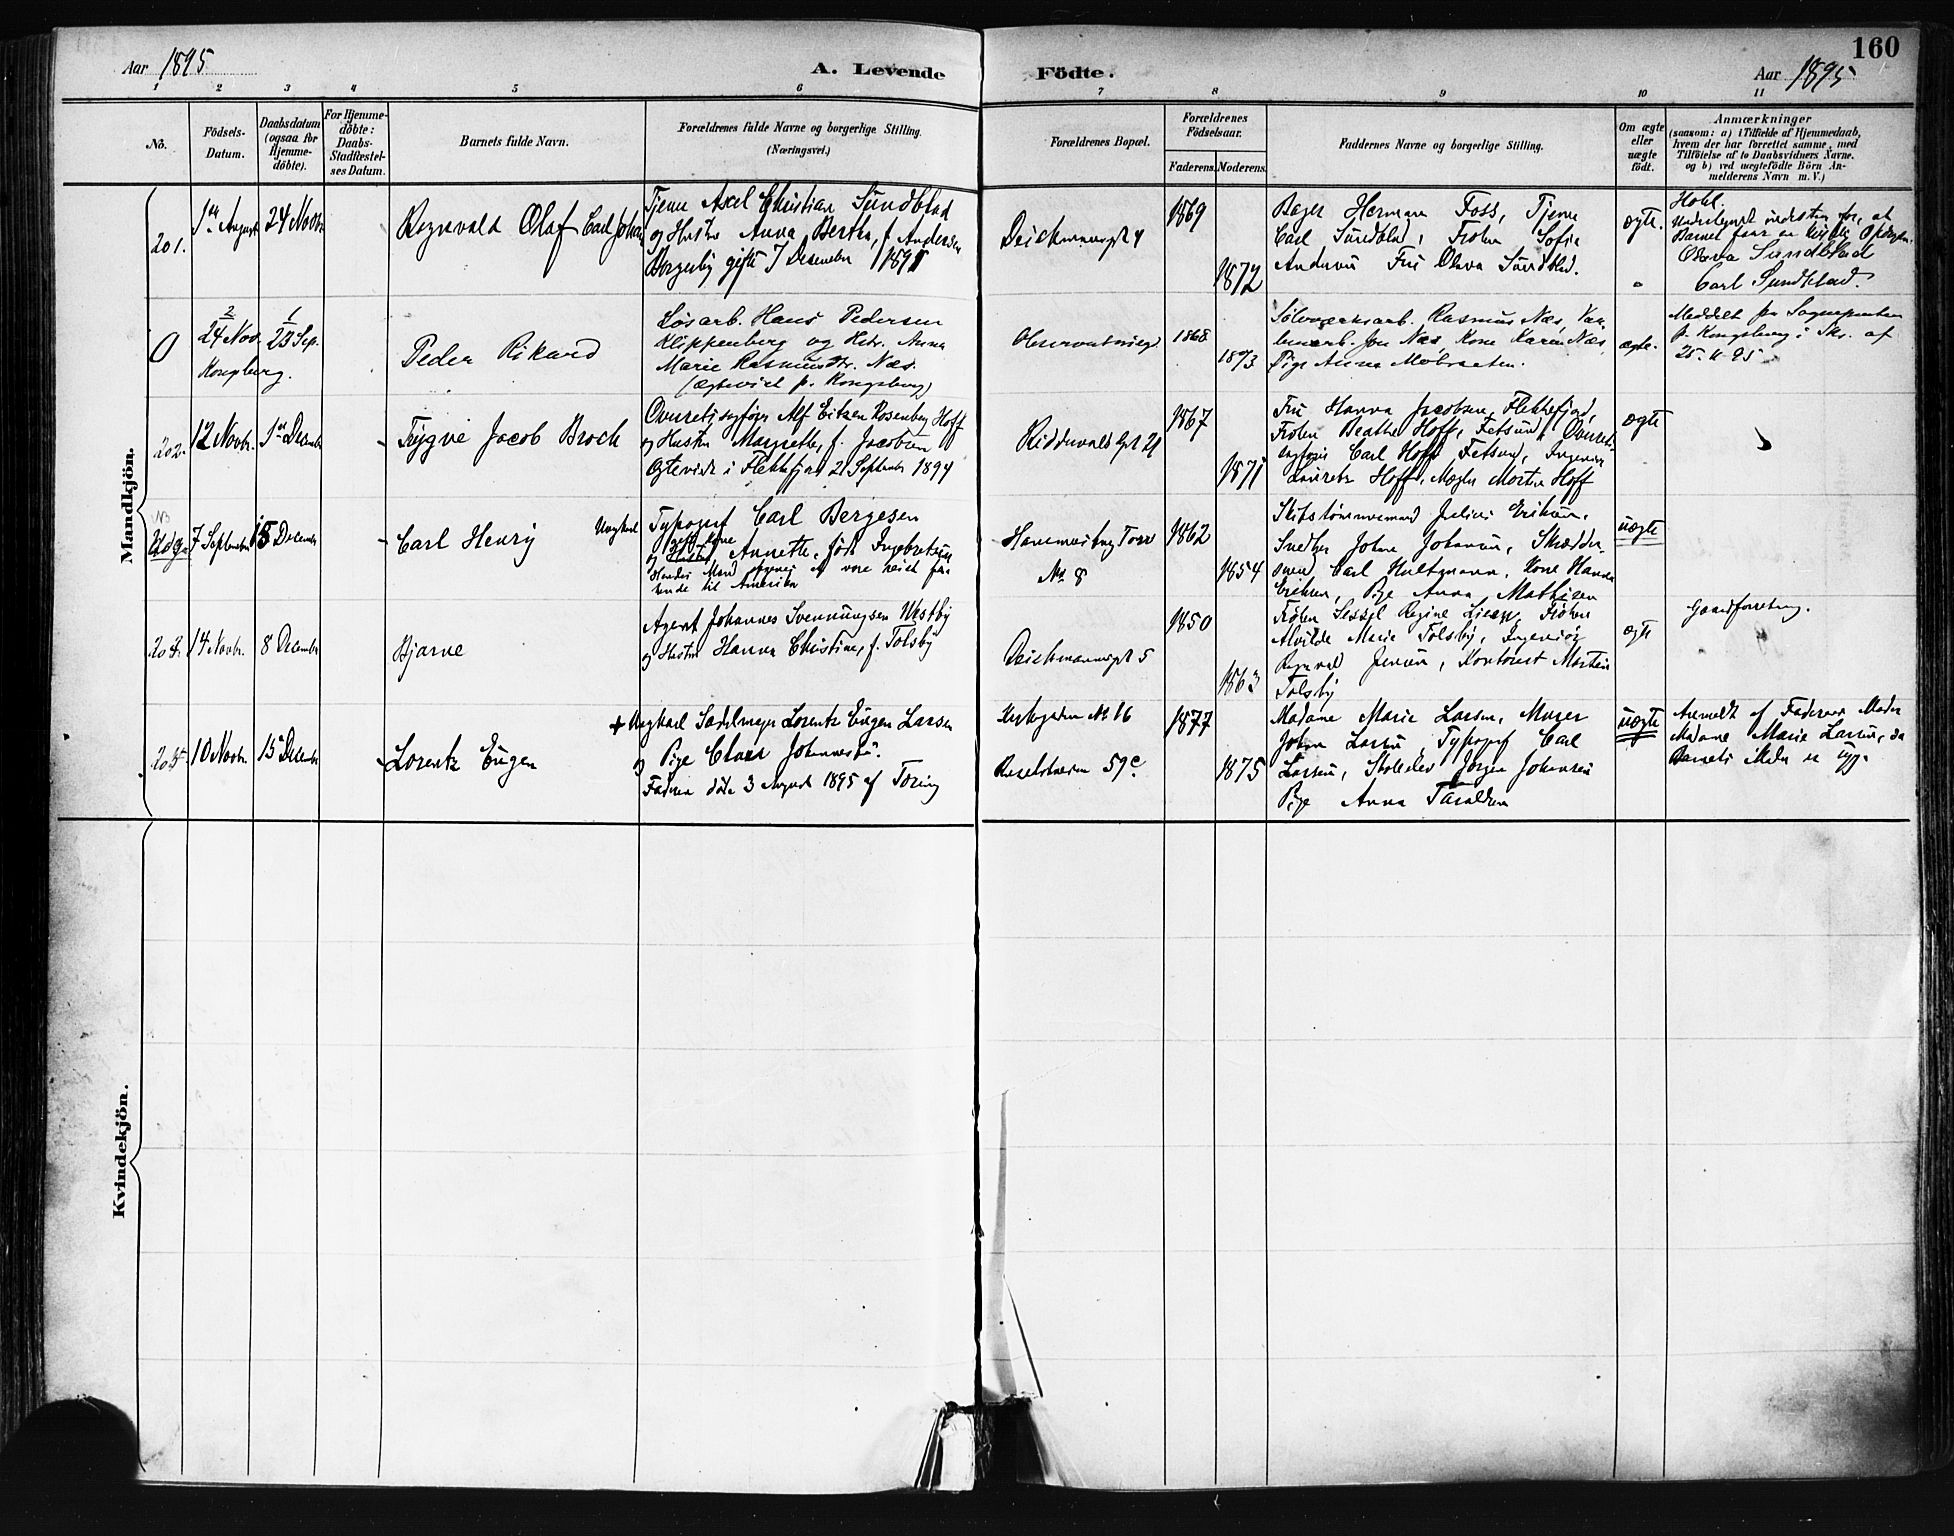 Aar 1895
A. Levende
Födte.
Aar 1895
160
1 2 3 4 5 6 7 8 9 10 11
No.
Födsels-
Datum.
Daabsdatum
(ogsaa for
Hjemme-
döbte).
For Hjemme-
döbte:
Daabs-
Stadfæstel-
ses Datum.
Barnets fulde Navn.
Forældrenes fulde Navne og borgerlige Stilling.
(Næringsvei.)
Forældrenes Bopæl.
Forældrenes
Födselsaar.
Faderens. Moderens.
Faddernes Navne og borgerlige Stilling.
Om ægte
eller
uægte
födt.
Anmærkninger
(saasom: a) i Tilfælde af Hjemmedaab,
hvem der har forrettet samme, med
Tilföielse af to Daabsvidners Navne.
og b) ved uægtefödte Börn An-
melderens Navn m. V.)
Mandkjön.
201.
1ste August
24 Novbr
Regnvald Olaf Carl Johan
Tjener Axel Christian Sundblad
og Hustru Anna Bertha, f. Andersen
Borgerlig gifte 7 Desember 1891
Deichmannsgt 4
1869
1872
Bager Herman Foss, Tjener
Carl Sundblad, Frøken Sofie
Andersen Fru Olava Sundblad.
ægte.
Barnet faar en
Olava Sundblad
Carl Sundblad.
0
2
24 Nov.
Kongsberg.
1
23 Sep.
Peder Rikard
Løsarb. Hans Pedersen
Klippenberg og Hstr. Anna
Marie Rasmusdtr. Næs.
(Ægteviet p. Kongsberg)
1868
1873
Sølvverksarb. Rasmus Næs,
Jon Næs, Kone Karen Næs,
Pige Anna
ægte.
Meddelt fra Sognepresten
p. Kongsberg i Skr. af
25-11-95
202.
12 Novbr.
1ste Desember
Trygve Jacob Broch
Overretssagfører Alf Eitzen Rosenberg Hoff
og Hustru Margrethe, f. Jacobsen
Ægteviede i Flekkefjord 21 September 1894
Riddervolds Gt 21
1867
1871
Fru Hanna Jacobsen, Flekkefjord,
Frøken Beathe Hoff, Fetsund, Overrets-
sagfører Carl Hoff Fetsund, Ingeniør
Lauretz Hoff, Mægler Morten Hoff
ægte
7 September
15 December
Carl Henry
Ungkarl
Typograf Carl Bergesen
gift Kone
og Annette, født Ingebretsen
Hendes Mand opgives at være reist
til Amerika
No. 8
1862
1854
Julius Eriksen,
Snedker Johan Johansen, Skrædder-
svend Carl Hultmann, Kone Hanna
Eriksen, Pige Anna Mathisen
uægte
14 Novbr.
8 December
Bjarne
Agent Johannes Svennungsen Westby
og Hustru Hanna Christine, f. Tolsby
Deichmannsgt 5
1850
1863
Frøken Sissel Regine Frøken
Alvilde Marie Tolsby, Ingeniør
Regnvald Jensen, Kontorist Martin
Tolsby
ægte
10 Novbr.
15 Desember
Lorentz Eugen
+ Ungkarl Sadelmager Lorentz Eugen Larsen
og Pige Clara Johannesen.
Faderen døde 3 August 1895 af Tæring
No 16
59c
1877
1875
Madame Marie Larsen, Murer
Johan Larsen, Typograf Carl
Larsen, Skoleelev Jørgen Johansen
Pige Anna Taraldsen
uægte
Anmeldt af Faderens Moder
Madame Marie Larsen, da
Barnets Moder er syg.
Kvindekjön.